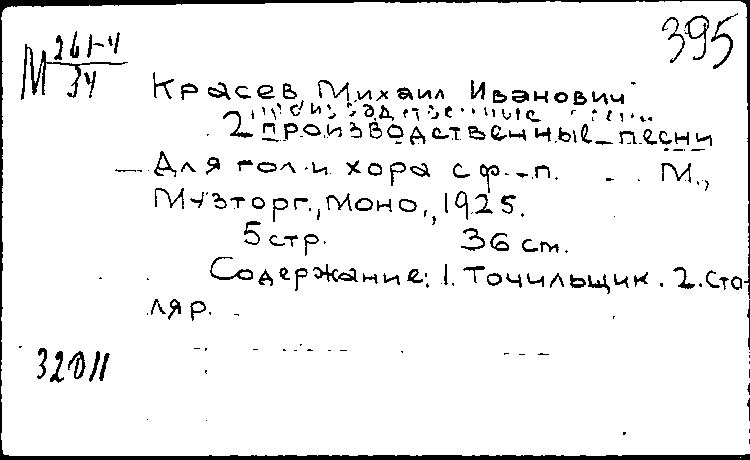 395
М 261-4
34
Красев Михаил Иванович
производственные песни
2 производственные песни
— Для гол. и хора с ф.-п. М.,
Музторг., Моно., 1925.
5 стр. 36 см.
Содержание: 1. Точильщик. 2. Сто-
ляр.
32011